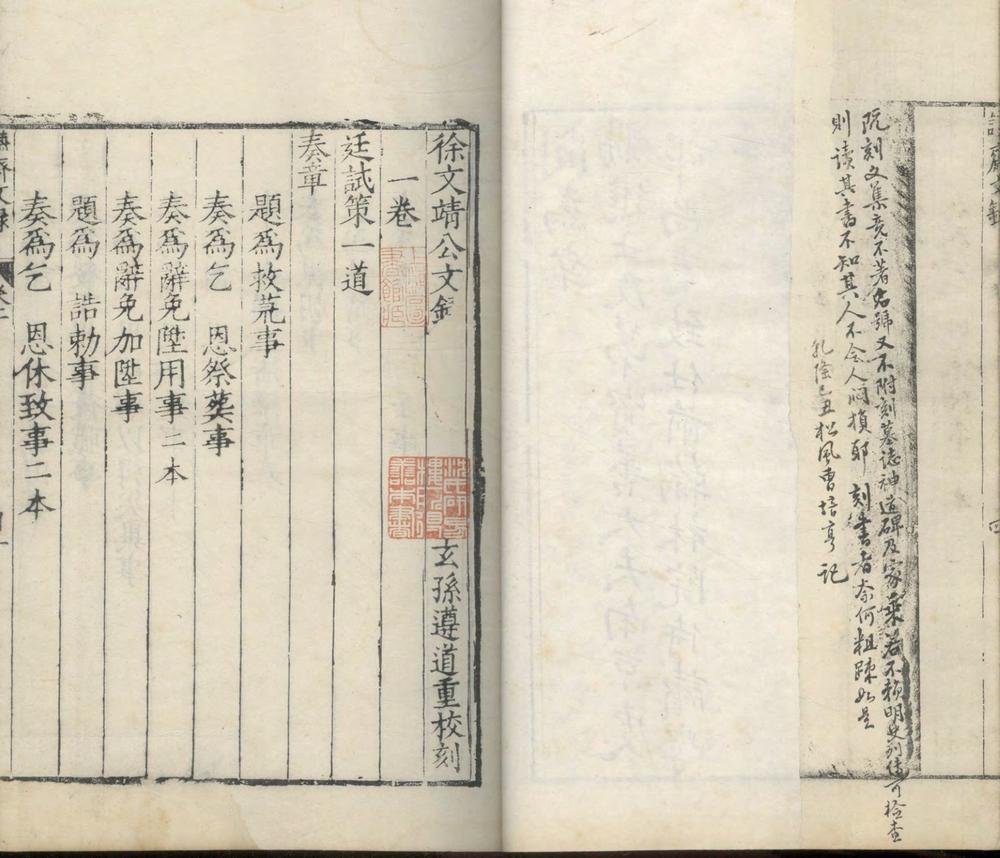 阮刻文集竟不著名號又不附刻墓誌神道碑及家乘若不賴明史列傳可檢查
則讀其書不知其人不令人悶損耶 刻書者奈何粗疎如是
乾隆己丑松風曹培亨記
徐文靖公文錄 玄孫遵道重校刻
一卷
廷試策一道
奏章
題為救荒事
奏為乞 恩祭葬事
奏為辭免陞用事二本
奏為辭免加陞事
題為 誥勅事
奏為乞 恩休致事二本